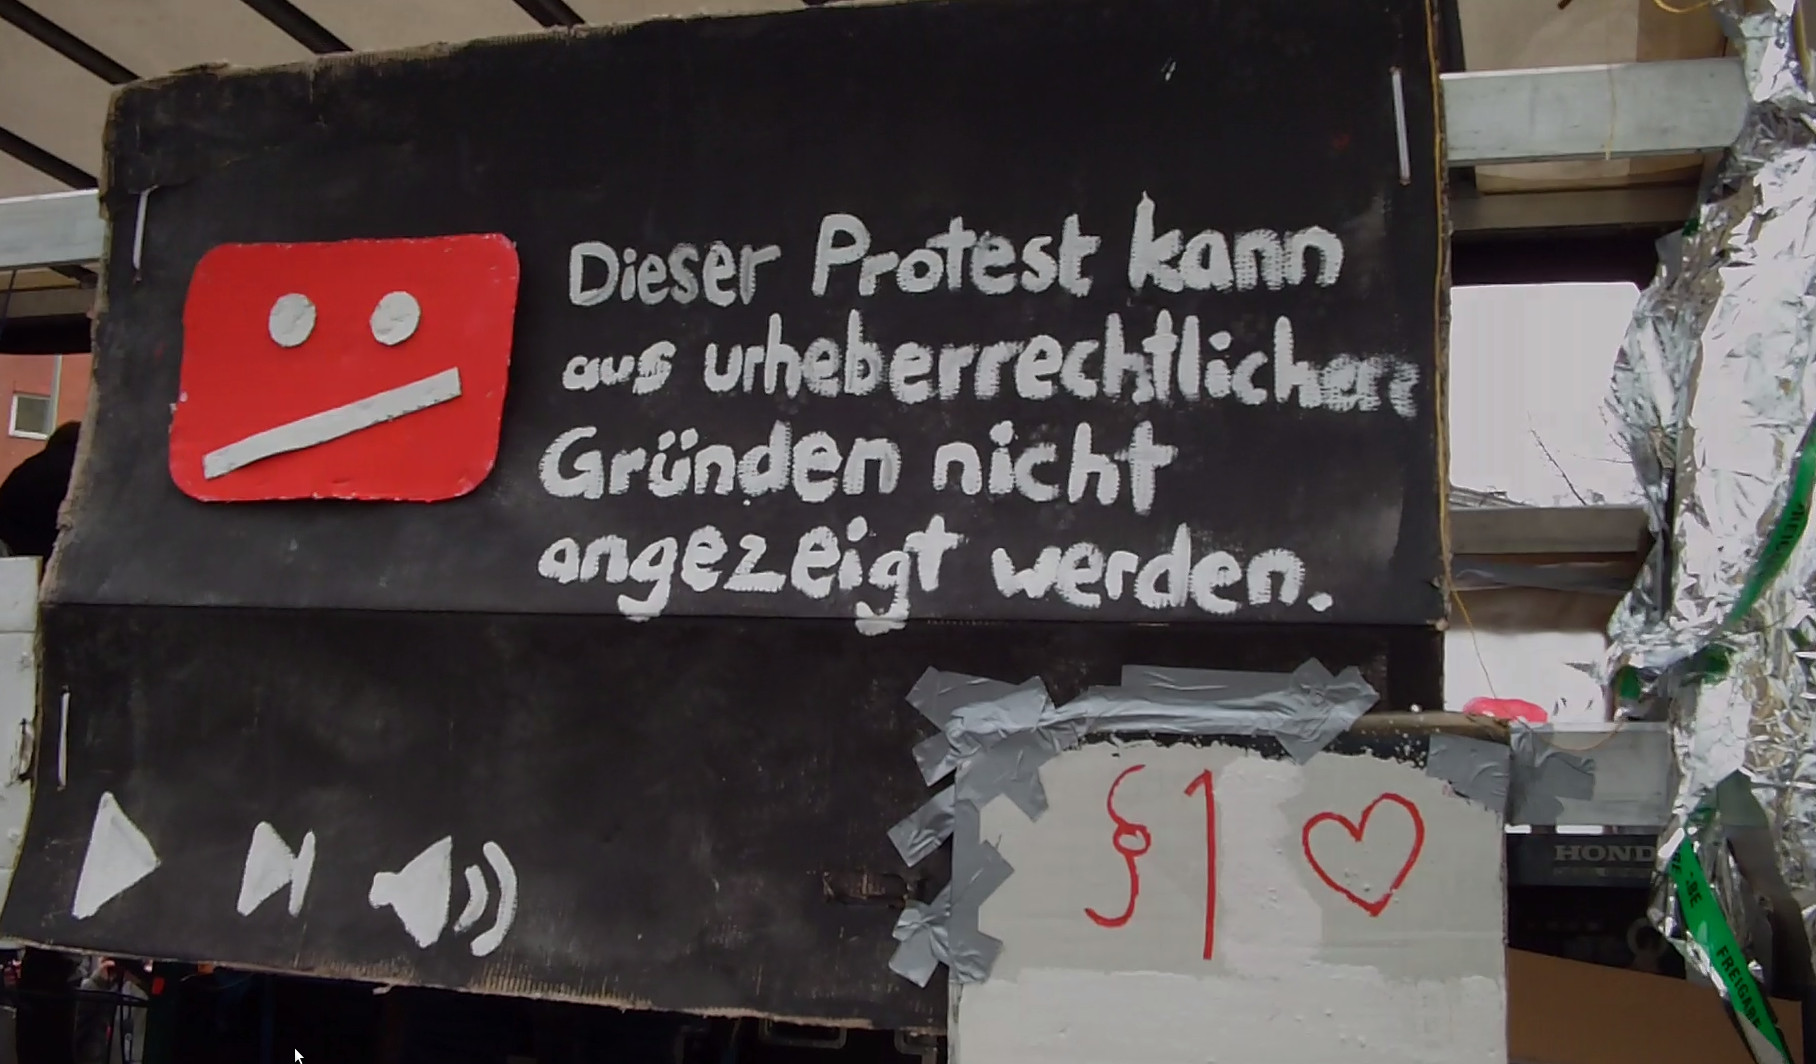 Dieser Protest kann
aus urheberrechtlichen
Gründen nicht
angezeigt werden.
§1
HOND
FREIGABE